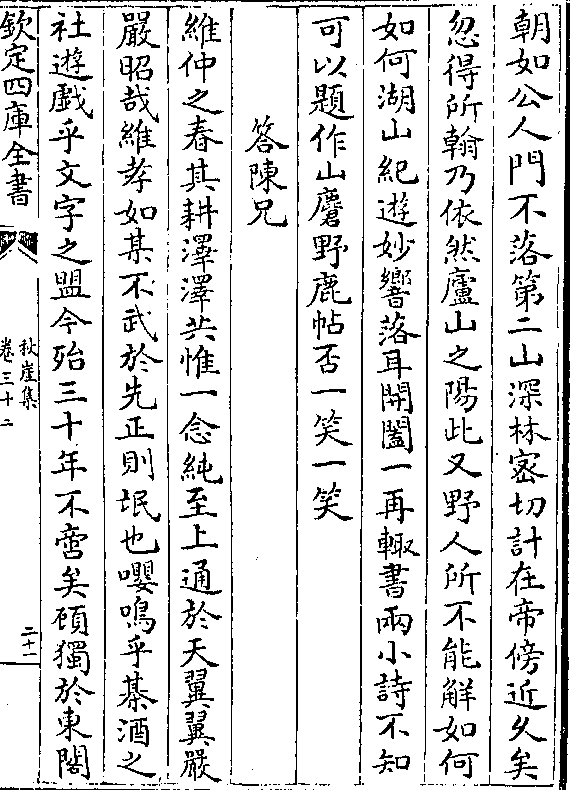 朝如公人門不落第二山深林密切計在帝傍近乆矣
忽得所翰乃依然廬山之陽此又野人所不能解如何
如何湖山紀遊妙響落耳開闔一再輙書兩小詩不知
可以題作山麏野鹿帖否一笑一笑
答陳兄
維仲之春其耕澤澤共惟一念純至上通於天翼翼嚴
嚴昭哉維孝如某不武於先正則氓也嚶鳴乎棊酒之
社遊戱乎文字之盟今殆三十年不啻矣頋獨於東閣
欽定四庫全書
秋崖集
卷三十二
二十一